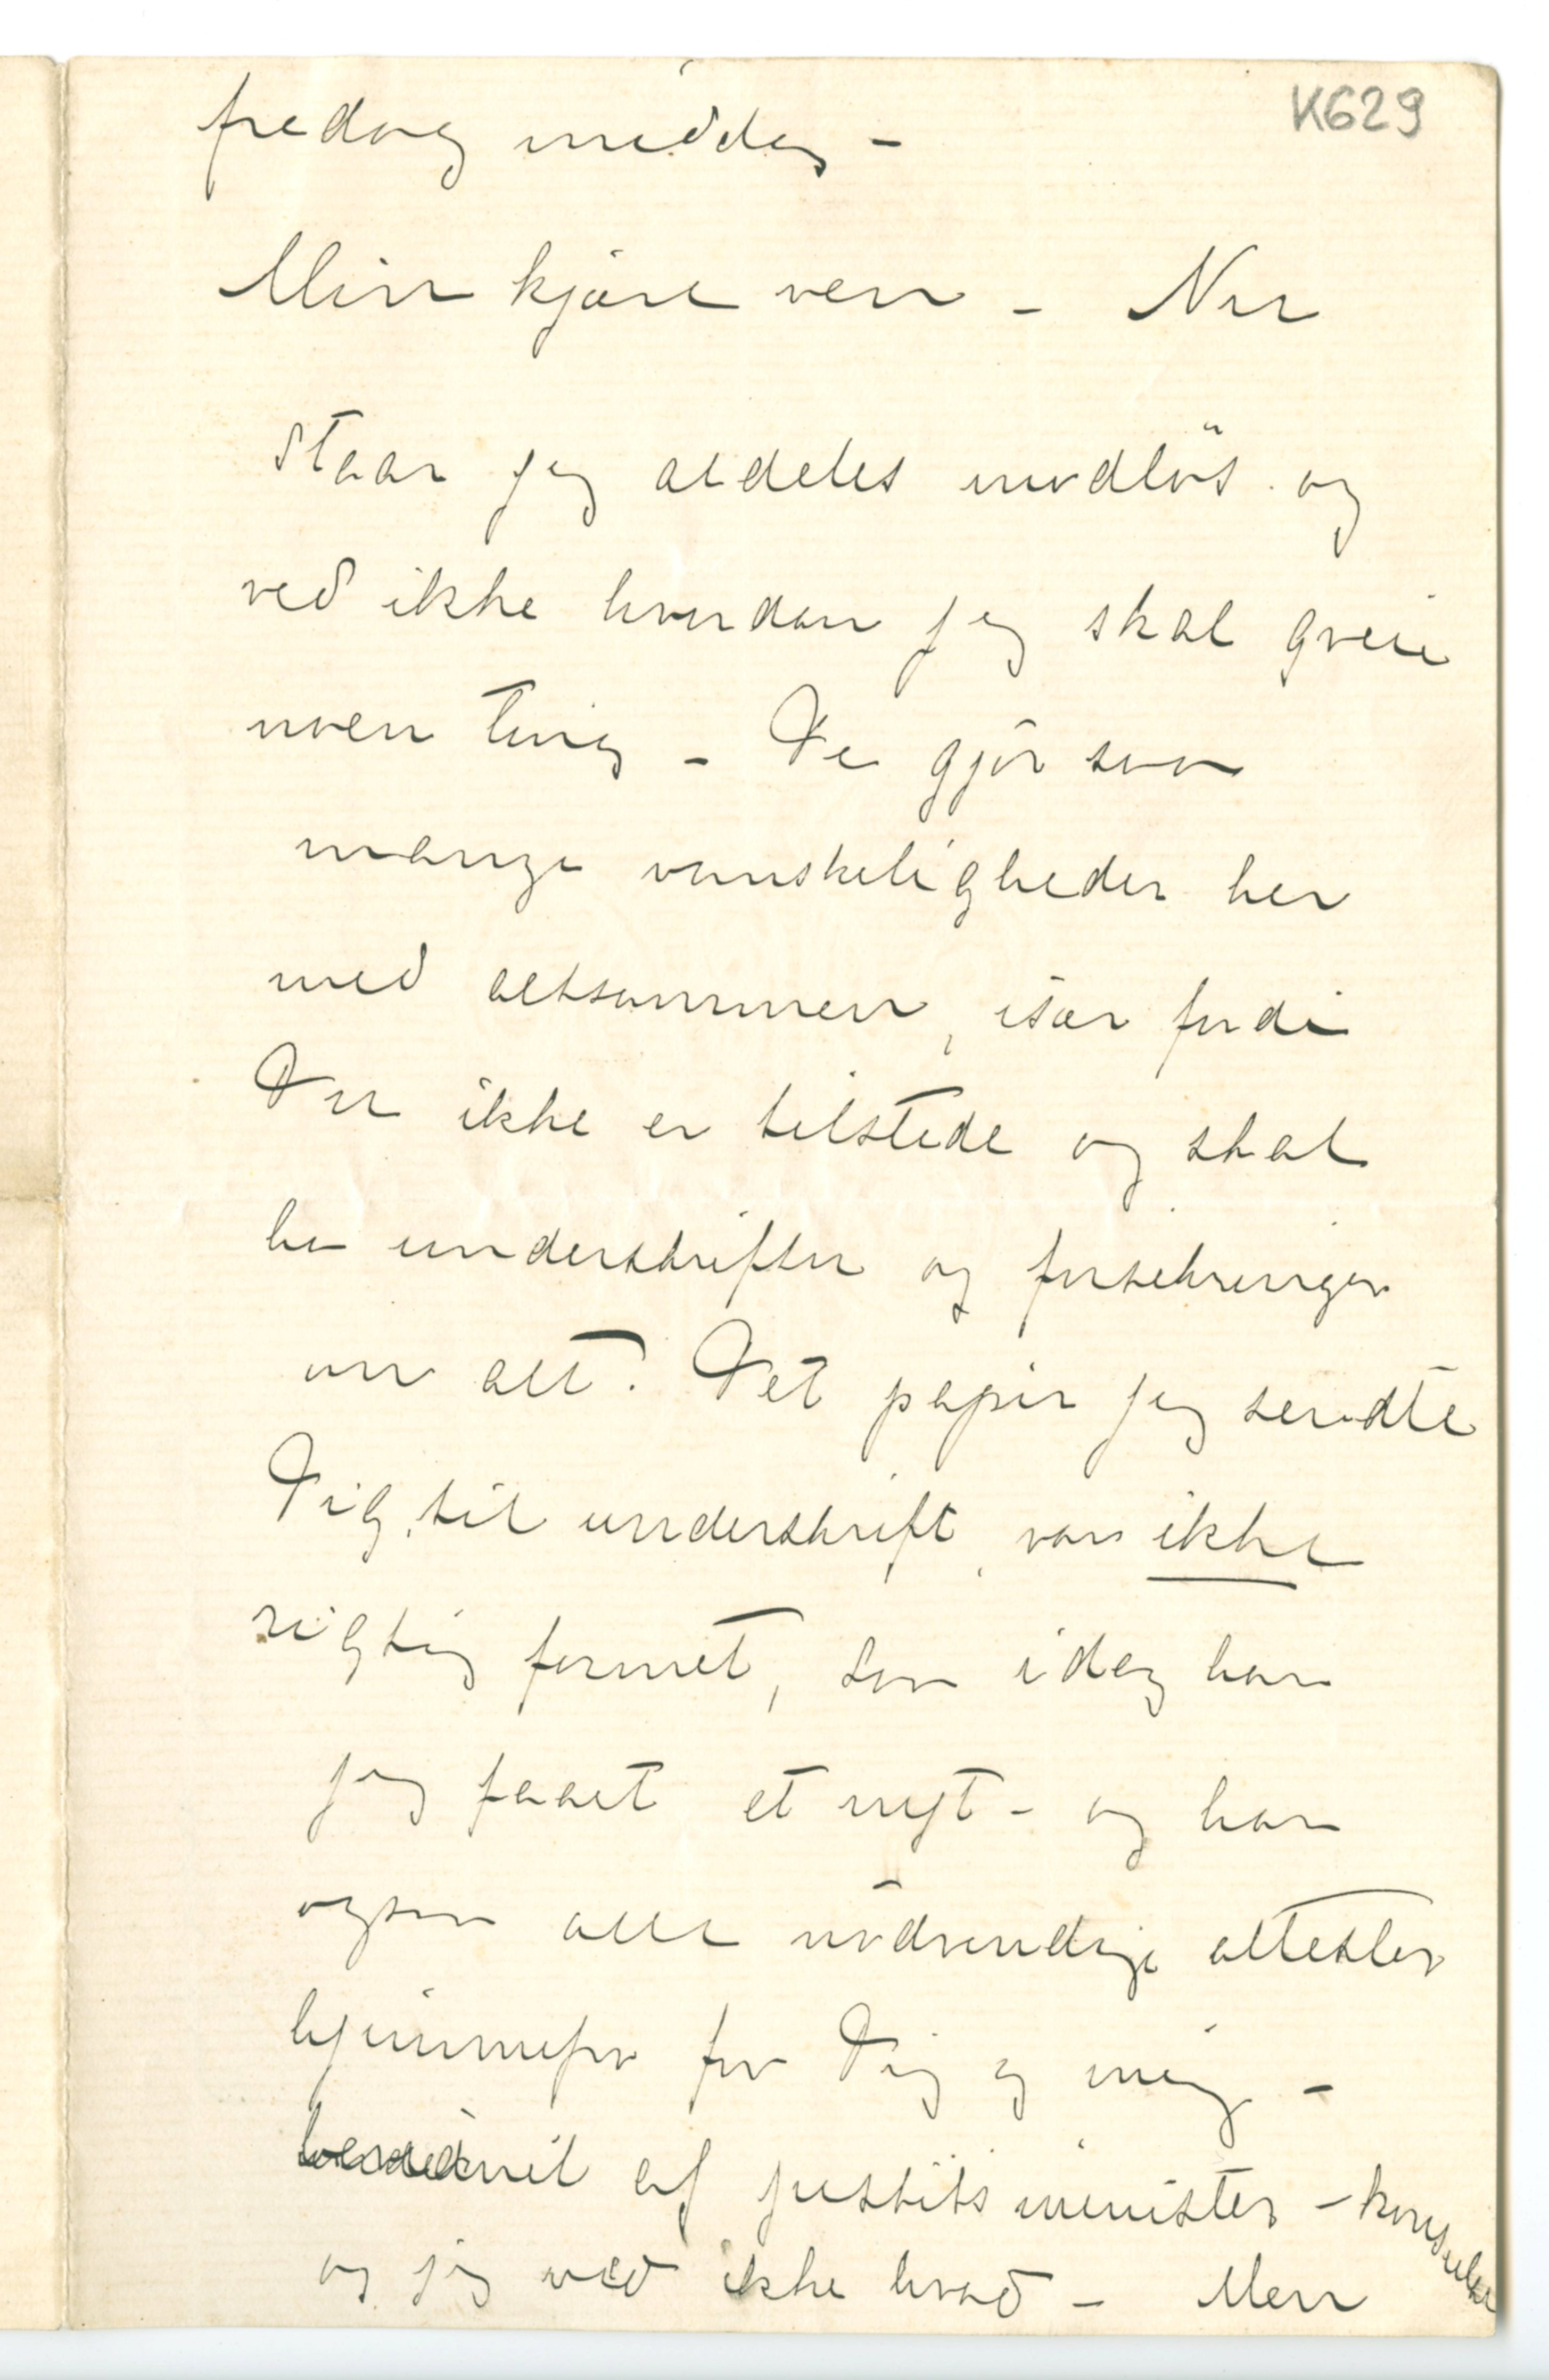 K629
fredag middag –
Min kjære ven – Nu
staar jeg aldeles modløs og
ved ikke hvordan jeg skal greie
noen ting – De gjør saa
mange vanskeligheder her
med altsammen, især fordi
Du ikke er tilstede og skal
ha underskrifter og forsikringer
om alt. Det papir jeg sendte
Dig til underskrift, var ikke
rigtig formet, saa idag har
jeg faaet et nyt – og har
ogsaa alle nødvendige attester
hjemmefra for Dig og mig –
af justitsminister – konsuler
og jeg ved ikke hvad – Men